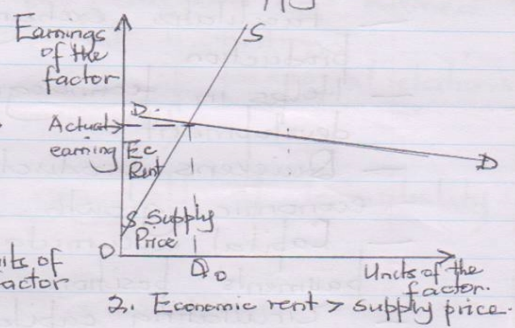 Earnings
of the
factor
S
D
Actual
earning
Ec
Rent
D
S Supply
Price
O
Q0
Units of the
factor.
its of
actor
2. Economic rent > supply price.